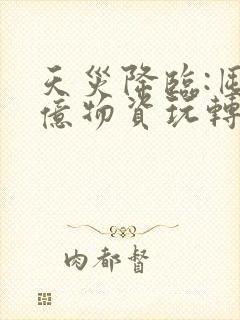 天災降臨:囤
億物資玩轉
肉都督